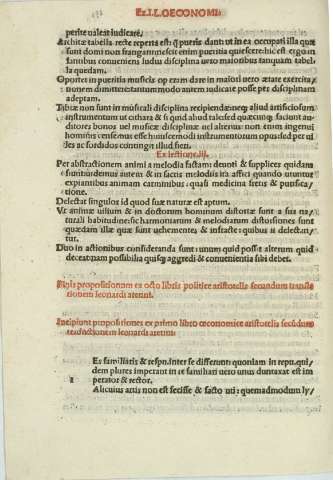 Ex.I.L.OECONOMI.
perite ualeat iudicare.
Architæ tabella recte reperta est quã pueris dant ut in ea occupati illa quæ
sunt domi non frangant nescit enim pueritia quiescere hic est ergo in
fantibus conueniens ludus disciplina uero maioribus tanquam tabel
la quædam.
Oportet in pueritia musica opera
nem dimittere tantummodo autem iudicare posse per disciplinam
adeptam.
Tibiæ non sunt in musicali disciplina recipiendæ neque aliud artificiosum
instrumentum ut cithara & si quid aliud tale sed quæcunque faciunt
ditores bonos uel musicæ disciplinæ uel alterius non enim ingenui
hominis censemus esse huiuscemodi instrumentorum opus sed
les ac sordidos contingit illud fieri.
Ex lectione.iij.
Per abstractionem animi a melodia factam: deuoti & supplices quidam
sunt in sacris melodiis ita affici quando utuntur
expiantibus animam carminibus: quasi medicina fretis & purifica
tione.
Delectat singulos id quod suæ naturæ est aptum.
Ut animæ uilium & in doctorum hominum distortæ sunt a sua na/
turali habitudine sic harmoniarum & melodiarum distorsiones sunt
quædam illæ quæ sunt uehementes & infractæ: quibus ii delectan/
tur.
Duo in actionibus consideranda sunt: unum quid posse alterum quid
deceat nam possibilia quisque aggredi & conuenientia sibi debet.
Finis propositionum ex octo libris politicæ aristotelis secundum transla
tionem leonardi aretini.
Incipiunt propositiones ex primo libro œconomicæ aristotelis secundum
traductionem leonardi aretini:
Ex familiaris & resp. inter se differunt quoniam in rep. qui/
dem plures imperant in re familiari uero unus duntaxat est im
perator & rector.
Alicuius artis non est fecisse & facto uti: quemadmodum ly/